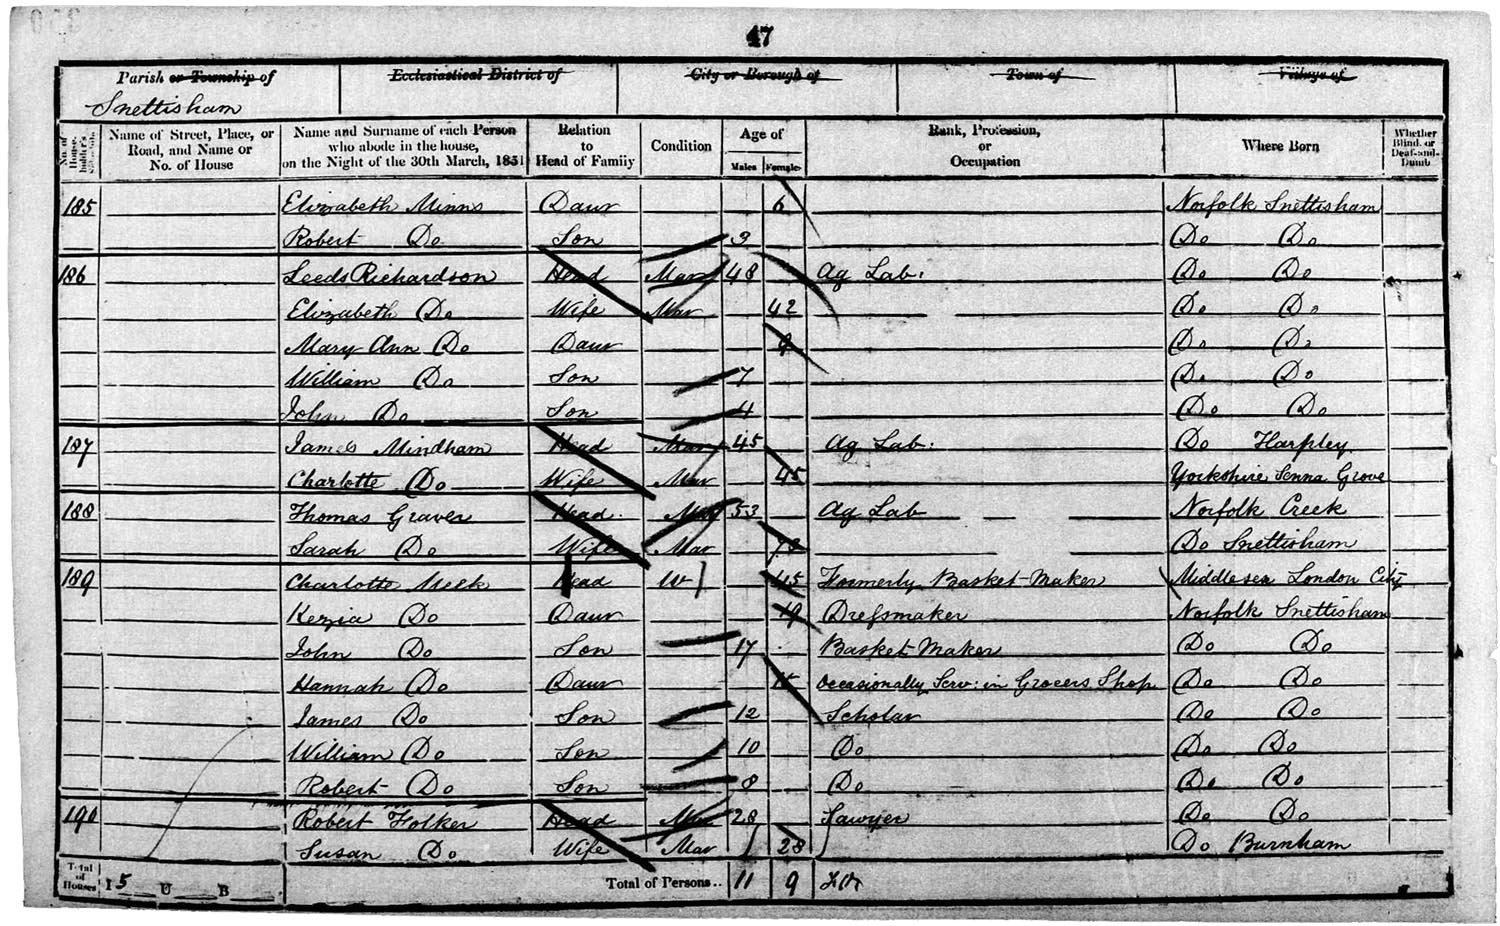 47
Parish or Township of Ecclesiastical District of City or Borough of Town of Village of
Snettisham
No. of House-holder's Schedule Name of Street, Place, or Road, and Name or No. of House Name and Surname of each Person who abode in the house, on the Night of the 30th March, 1851 Relation to Head of Family Condition Age of Males Females Rank, Profession, or Occupation Where Born Whether Blind, or Deaf-and-Dumb
185 Elizabeth Minns Daur 6 Norfolk Snettisham
Robert Do Son 3 Do Do
186 Leeds Richardson Head Mar 48 Ag Lab: Do Do
Elizabeth Do Wife Mar 42 Do Do
Mary Ann Do Daur 9 Do Do
William Do Son 7 Do Do
John Do Son 4 Do Do
187 James Mindham Head Mar 45 Ag Lab: Do Harpley
Charlotte Do Wife Mar 45 Yorkshire Grove
188 Thomas Graver Head Mar 53 Ag Lab Norfolk Creek
Sarah Do Wife Mar Do Snettisham
189 Charlotte Meek Head W 45 Formerly Basket Maker Middlesex London City
Kezia Do Daur 19 Dressmaker Norfolk Snettisham
John Do Son 17 Basket Maker Do Do
Hannah Do Daur Occasionally Serv: in Grocers Shop Do Do
James Do Son 12 Scholar Do Do
William Do Son 10 Do Do Do
Robert Do Son 8 Do Do Do
190 Robert Folker Head Mar 28 Sawyer Do Do
Susan Do Wife Mar 28 Do Burnham
Total of Houses I 5 U B Total of Persons.. 11 9